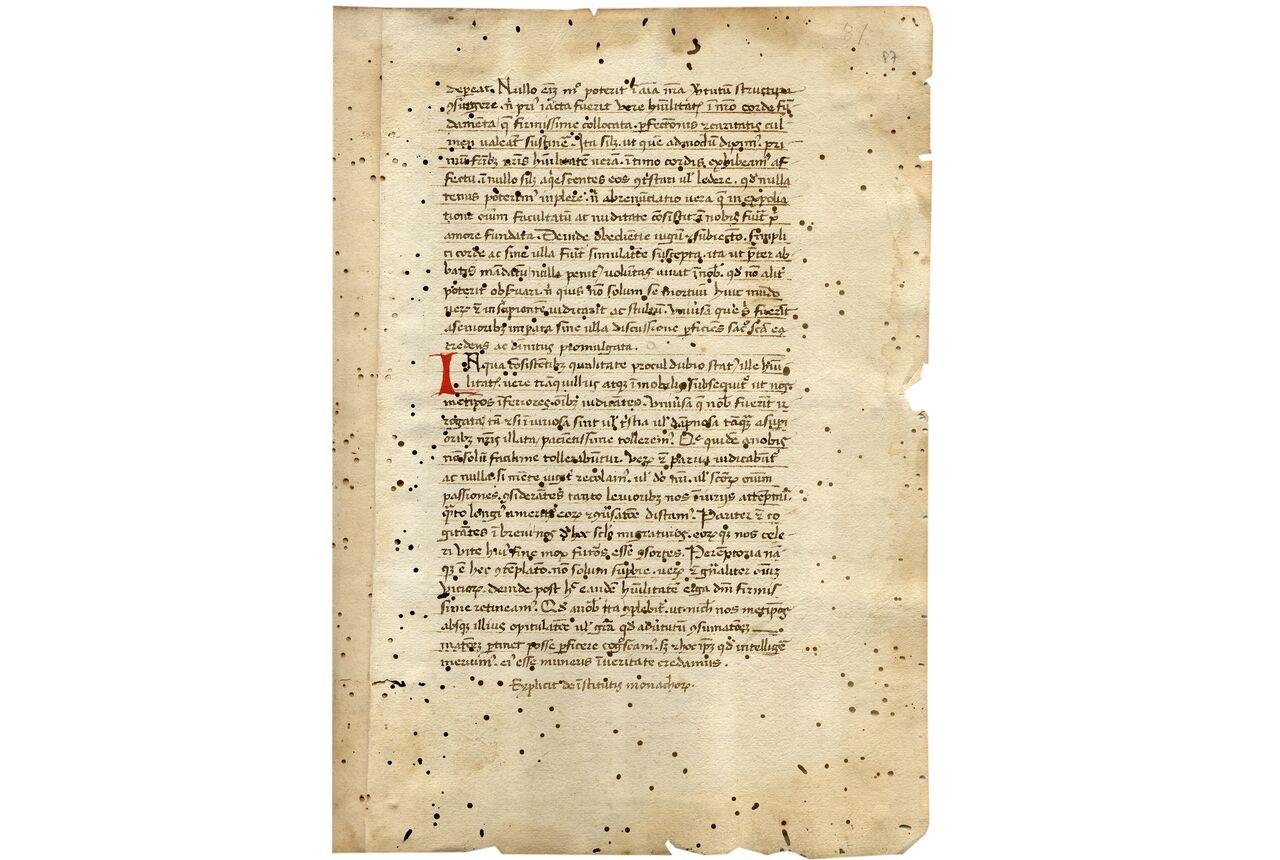 depereat. Nullo eīz mº poterit ī aīa nr̄a v̓tutū structura
ꝯsurgere. n̄ pri᷒ iacta fuerit vere hūilitat᷒ ī nr̄o corde fū
damenta q̄ firmissime cōllocata. ꝑfectionis ⁊ caritatis cul
men valeāt sustin̄e. Ita silꝫ ut que admodū dixim᷒. pri
mū fr̄ibꝫ nr̄is hūilitatē verā. ītimo cordis exhibeam᷒ af
fectu. ī nullo silꝫ aq̄escentes eos ꝯt̓stari ul̓ ledere. qd̓ nulla
tenus poterim᷒ inplere. n̄ abrenūciatio vera q̄ in expolia
tione oīum facultatū ac nuditate cōsistit ī nobis fuīt ꝓ
amore fundata. Deinde obedientie iugū ⁊ subiectō. simpli
ci corde ac sine ulla fuīt simulatōe suscepta. ita ut p̄ter ab
batis mādatū nulla penit᷒ volūtas vivat ī nob̄. qd̓ nō alit̓
poterit obs̓vari. n̄ quis nō solum se mortuū huic mūdo
verꝫ ⁊ insipientē iudicav̓it ac stultū. Univ̓sa que ei fuerīt
a senioribꝫ impata sine ulla discussione ꝑficies sac᷒ scā ea
credens ac divinitus promulgata.
IN qua cōsistentibꝫ qualitate procul dubio stat᷒ ille hūi
litat᷒ vere trāquillus atqꝫ īmobilis subsequit᷒ ut nos
metipos īferiores oībꝫ iudicātes. Univ̓sa q̄ nob̄ fuerīt ir
rogata tā ⁊ si īiuriosa sint ul̓ t̓stia ul̓ dāpnosa tāqꝫ a supi
oribꝫ nr̄is illata pacientissime tollerem᷒. Que quidē a nobis
nō solū facilime tollerabūtur. verꝫ ⁊ parva iudicabūt᷒
ac nulla. si mente iugit̓ recolam᷒. ul̓ dn̄i nr̄i. ul̓ scōꝝ oīum
passiones. ꝯsiderātes tanto levioribꝫ nos īiuriis atteptari.
q̄to longi᷒ a meritis eoꝝ ⁊ ꝯv̓satōe distam᷒. Pariter ⁊ co
gitātes ī brevi nos d̓ hoc sclō migraturos. eoꝝqꝫ nos cele
ri vite hui᷒ fine mox futōs esse ꝯsortes. Perēptoria nā
qꝫ ē hec ꝯtēplatō. nō solum supbie. verꝫ ⁊ gn̄aliter oīum
vicioꝝ. deinde post h̄ eandē hūilitatē erga dm̄ firmis
sime retineam᷒. Qd̓ a nob̄ ita ꝯplebit᷒. ut nichil nos metipos
absqꝫ illius opitulatōe ul̓ gr̄a qd̓ ad v̓tutū ꝯsumatōez
ꝑtinet posse ꝑficere cog̓scam᷒. sꝫ ⁊ hoc ipꝫ qd̓ intelligē
meruim᷒. ei᷒ esse muneris ī veritate credamus.
Explicit de īstitutis monachoꝝ.
87